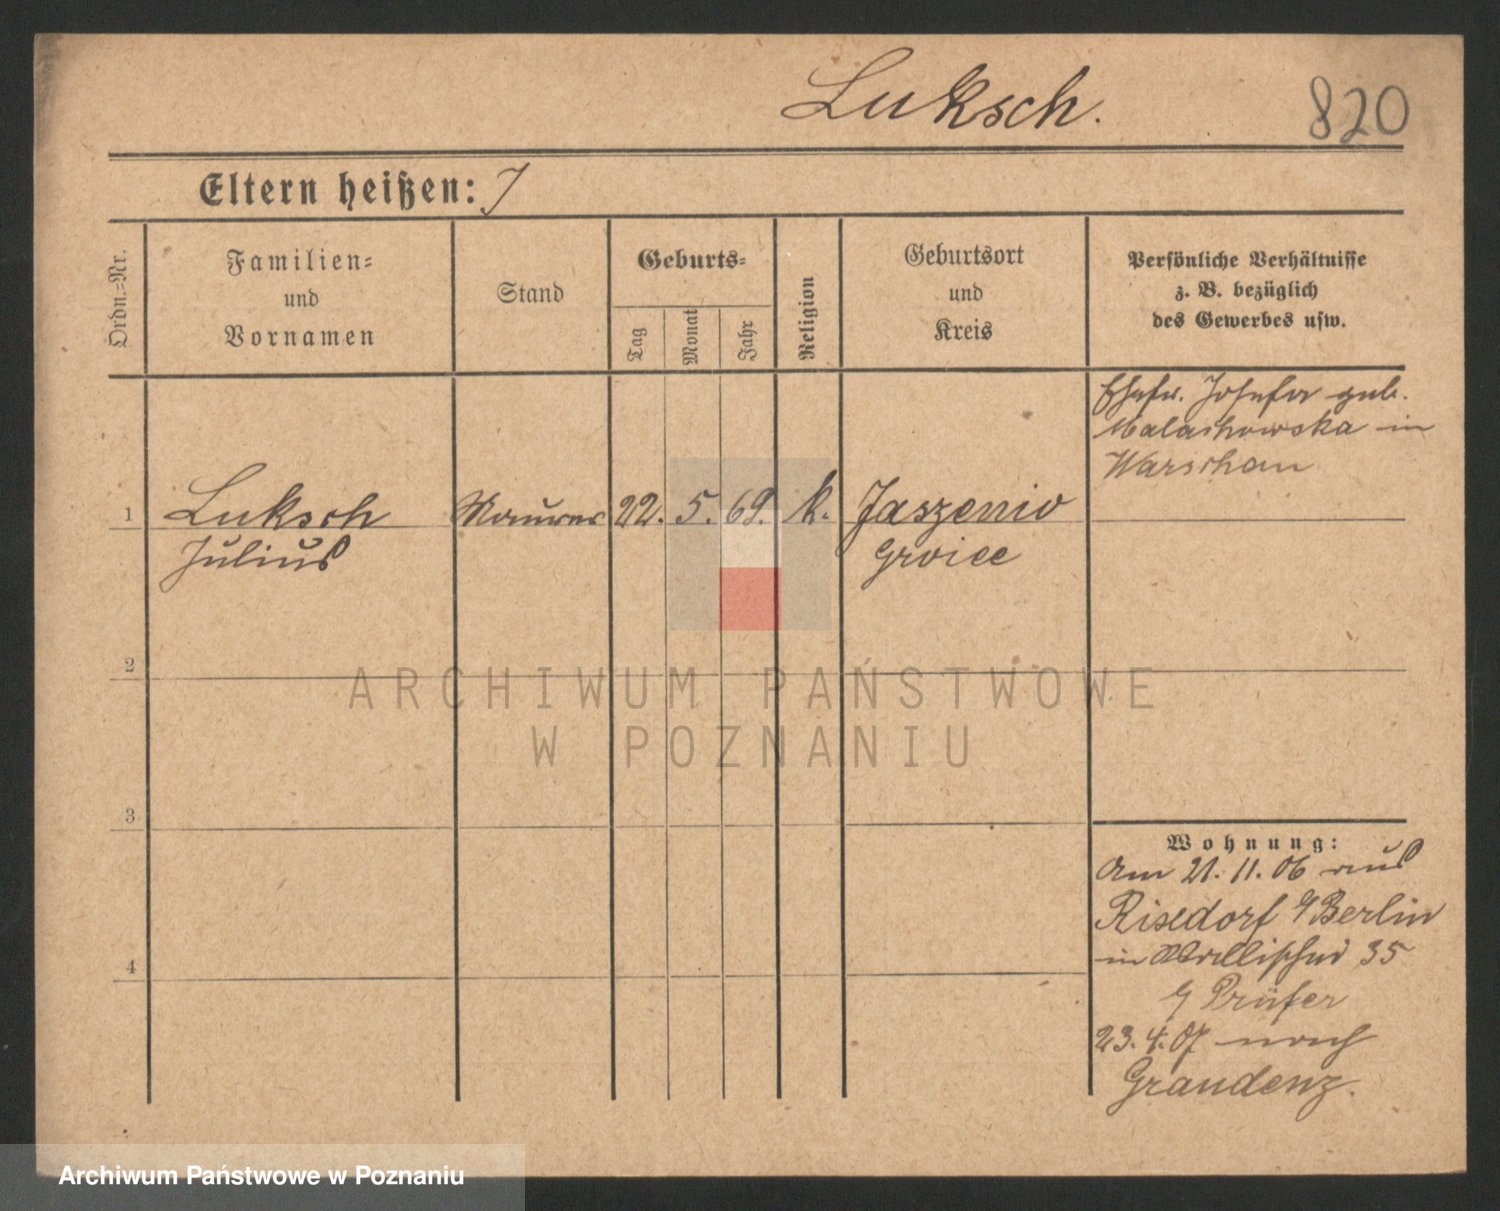 Luksch.
820
Eltern heißen:
Ordn.=Nr.
Familien=
und
Vornamen
Stand
Geburts=
Tag
Monat
Jahr
Religion
Geburtsort
und
Kreis
Persönliche Verhältnisse
z. B. bezüglich
des Gewerbes usw.
Ehefr. Josefa geb.
Malachowska in
Warschau
1
Luksch
Maurer
22. 5. 69. k.
Jaszenio
Julius
Groice
2
ARCHIWUM PAŃSTWOWE
W POZNANIU
3
Wohnung:
Am 21. 11. 06 aus
Rixdorf b/Berlin
4
in Wallischei 35
b/ Prüfer
23. 4. 07 nach
Graudenz.
Archiwum Państwowe w Poznaniu